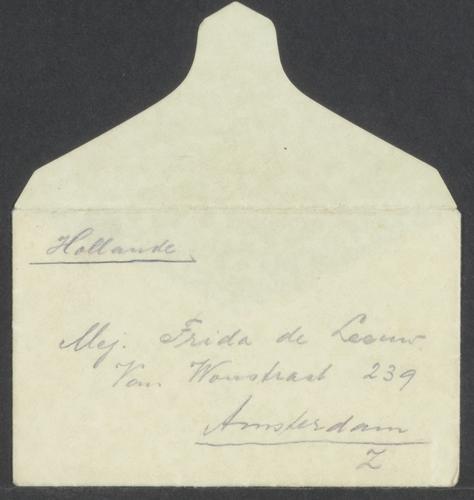 Hollande
Mej. Frida de Leeuw.
Van Woustraat 239
Amsterdam
Z